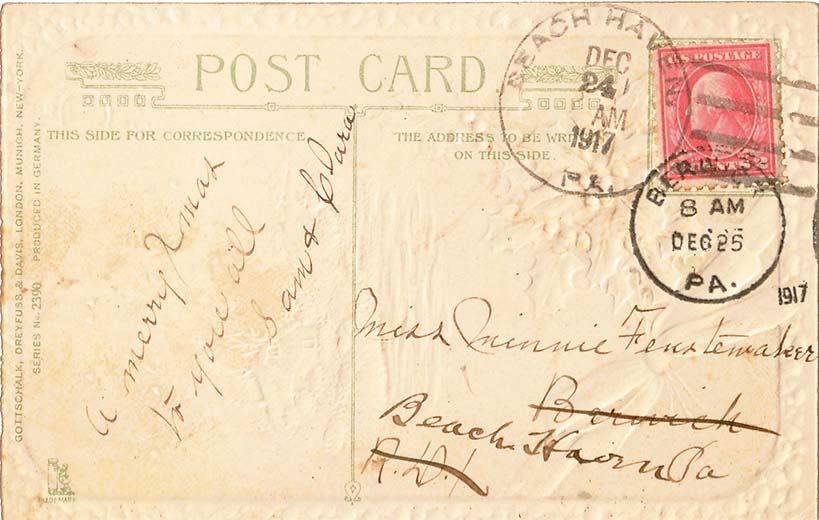 POST CARD
THIS SIDE FOR CORRESPONDENCE
THE ADDRESS TO BE WRI
ON THIS SIDE.
GOTTSCHALK, DREYFUSS & DAVIS, LONDON, MUNICH, NEW-YORK.
SERIES No. 2390 PRODUCED IN GERMANY.
BEACH HAVEN
DEC
24
AM
1917
PA.
U.S. POSTAGE
2 CENTS 2
BERWICK
8 AM
DEC 25
PA.
1917
A merry Xmas
to you all
Sam & Clara
Miss Minnie Fenstemaker
Berwick
Beach Haven Pa
R.D.1
TRADE MARK